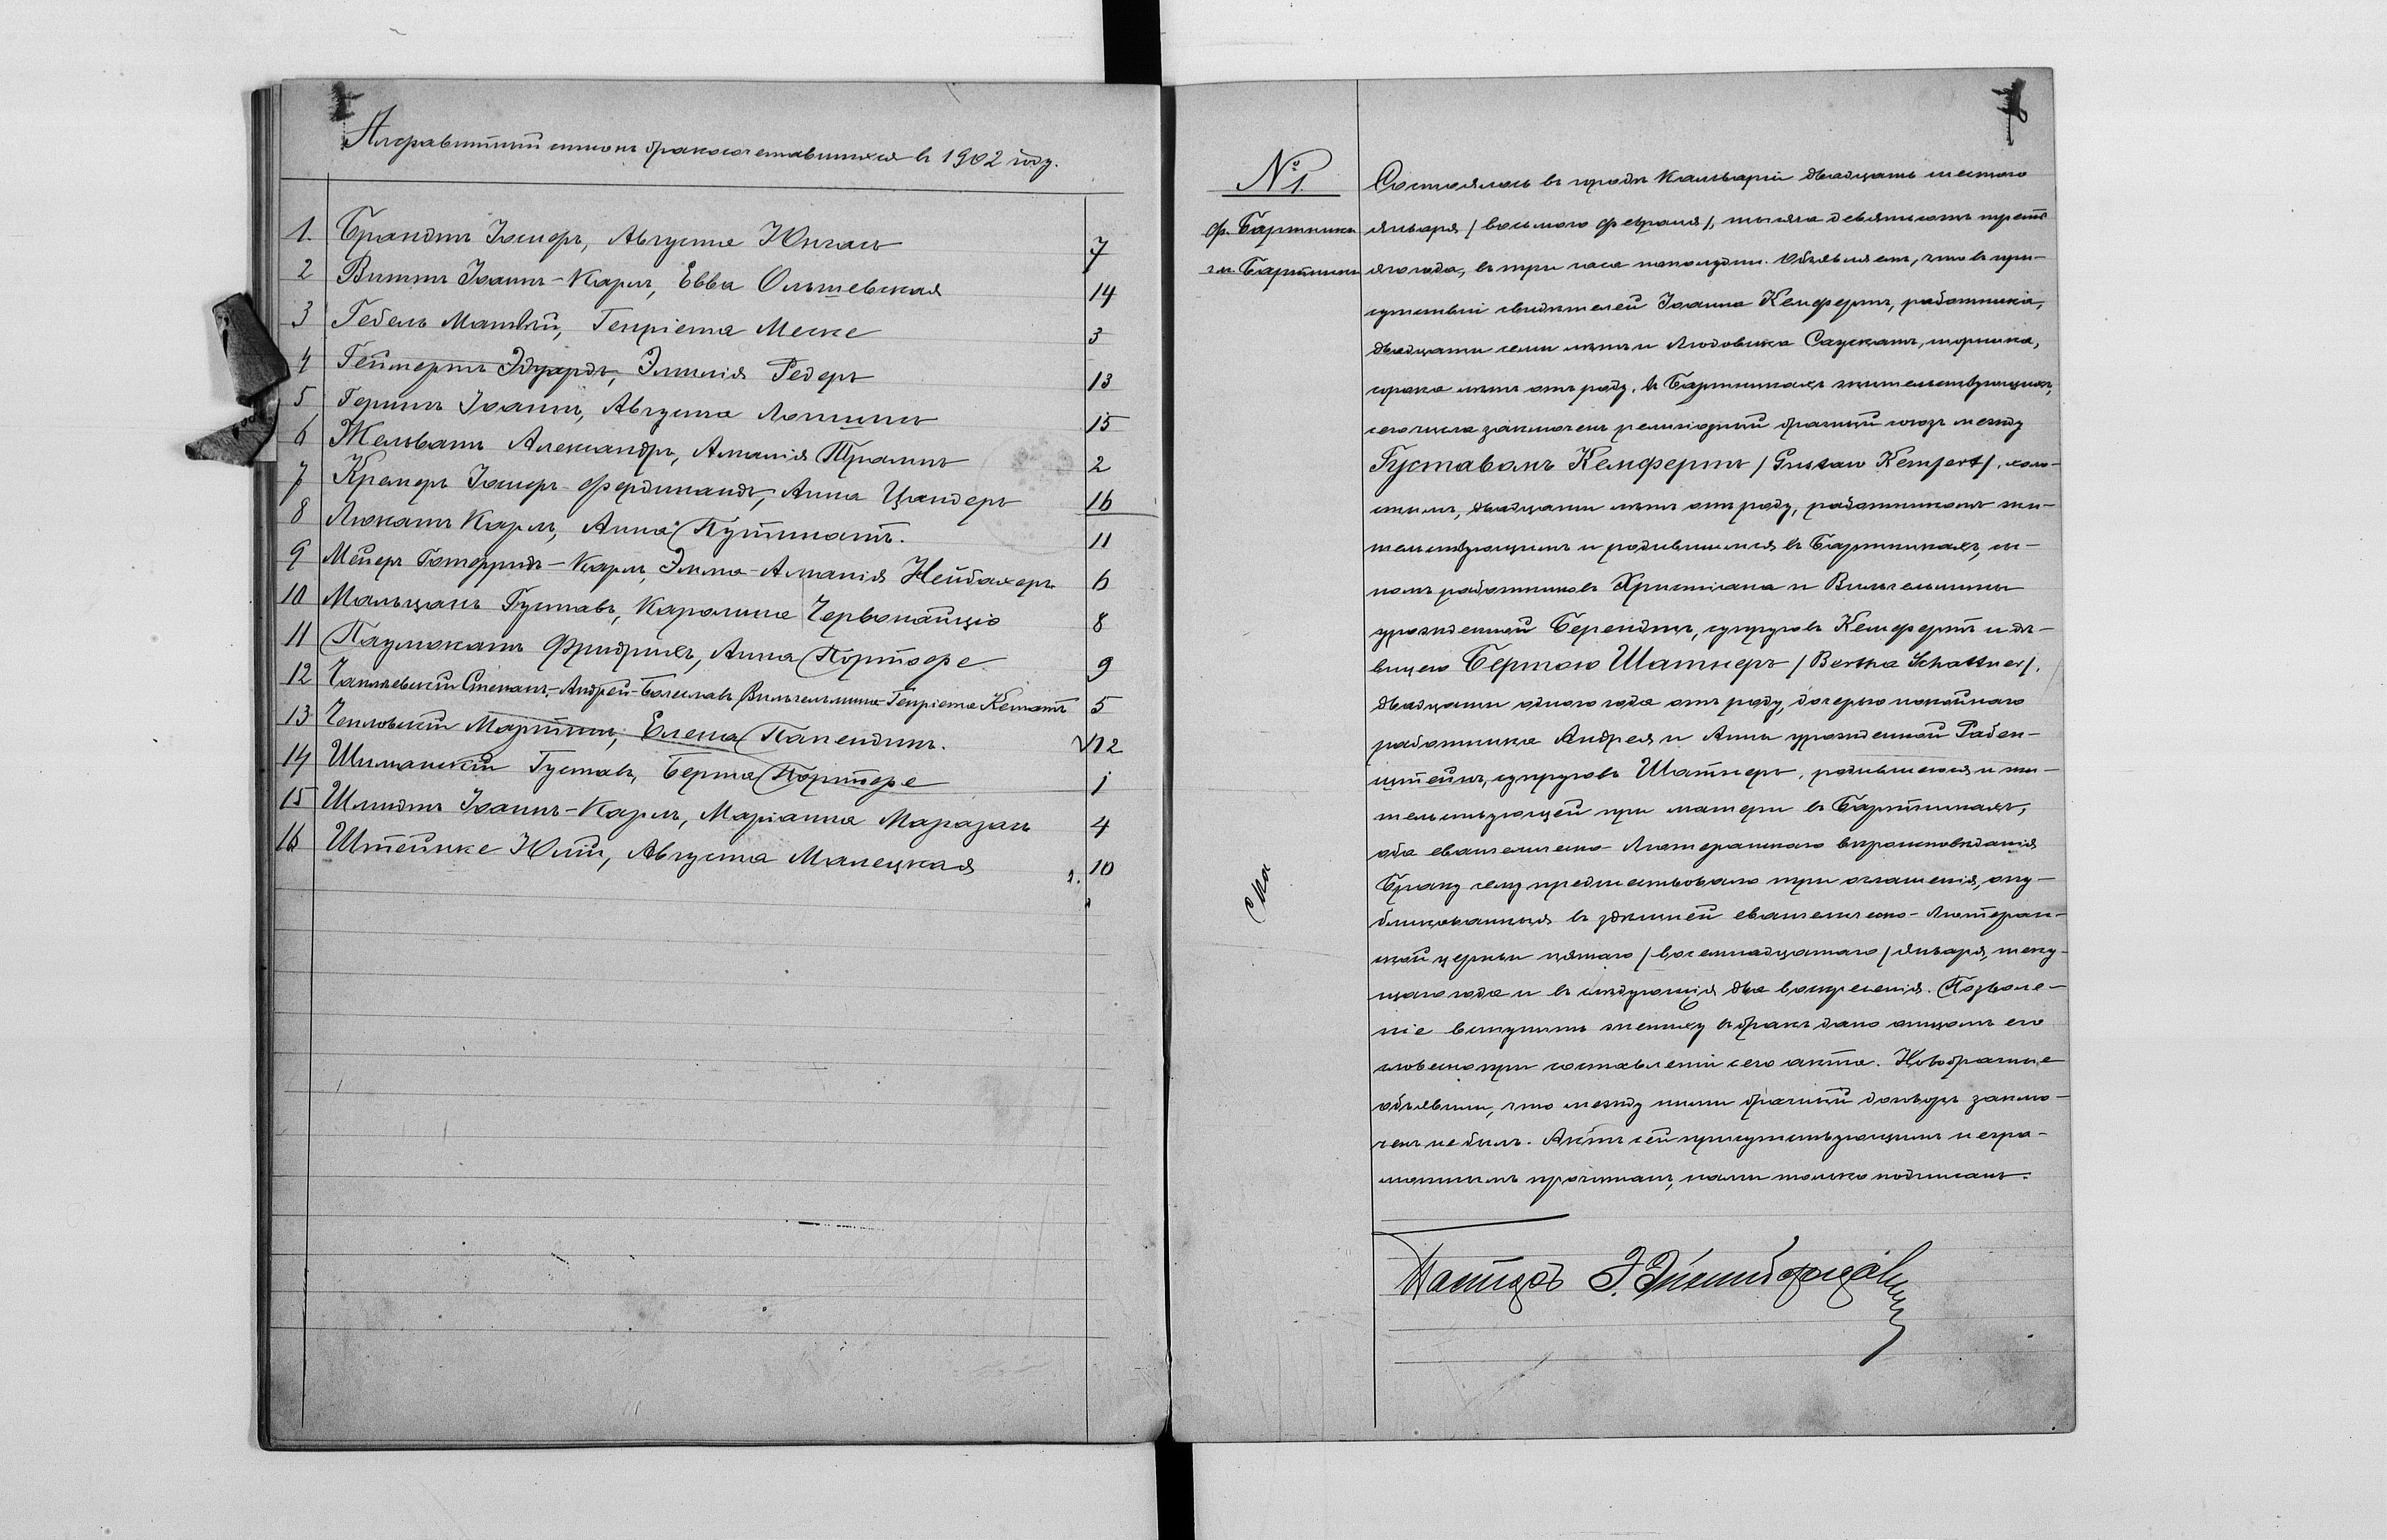 Алфавитный списокъ бракосочетавшихся въ 1902 году.
1. Брандтъ Іосифъ, Августа Юнганъ 7
2 Виттъ Іоаннъ-Карлъ, Евва Ольшевская 14
3 Гебель Матвѣй, Генріета Меске 3
4 Геймертъ Эдуардъ, Эмилія Редеръ 13
5 Геринъ Іоаннъ, Августа 15
6 Жельватъ Александръ, Амалія 2
7 Кремеръ Іосифъ-Фердинандъ, Анна Цандеръ 16
8 Люкатъ Карлъ, Анна Путинатъ. 11
9 Мейеръ Готфридъ-Карлъ, Эмма-Амалія Нейбахеръ 6
10 Мальцанъ Густавъ, Каролина Червонайцю 8
11 Паулюкатъ Фридрихъ, Анна Портофе 9
12 Степанъ-Андрей-Болеславъ Вильгельмина-Генріета 5
13 Мартинъ, Елена Папендикъ. 12
14 Шиманскій Густавъ, Берта Портофе 1
15 Шмидтъ Іоаннъ-Карлъ, Маріанна Маразасъ 4
16 Штейнке Юлій, Августа Малецкая 10
№ 1.
ф. Бартники
Бартники
Состоялось въ городѣ Кальваріи двадцать шестого
января /восьмого февраля/, тысяча девятьсотъ треть-
яго года, въ три часа пополудни. Объявляемъ, что въ при-
сутствіи свидѣтелей Іоанна Кемферта, работника,
двадцати семи лѣтъ и Людовика Саускатъ, портного,
сорока лѣтъ отъ роду, въ Бартникахъ жительствующихъ,
сего числа заключенъ религіозный брачный союзъ между
Густавомъ Кемфертъ /Gustaw Kempfert/, холо-
стымъ, двадцати лѣтъ отъ роду, работникомъ жи-
тельствующимъ и родившимся въ Бартникахъ, сы-
номъ работниковъ Христіана и Вильгельмины
урожденной Берендтъ, супруговъ Кемфертъ и дѣ-
вицею Бертою Шатнеръ /Bertha Schattner/,
двадцати одного года отъ роду, дочерью покойнаго
работника Андрея и Анны урожденной Рабен-
штейнъ, супруговъ Шатнеръ, родившеюся и жи-
тельствующей при матери въ Бартникахъ,
оба евангелическо-Лютеранскаго вѣроисповѣданія
Браку сему предшествовало три оглашенія, опу-
бликованныя въ здѣшней евангелическо-Лютеран-
ской церкви пятаго /восемнадцатаго/ января, теку-
щаго года и въ слѣдующія два воскресенія. Позволе-
ніе вступить жениху въ бракъ дано отцомъ его
словесно при составленіи сего акта. Новобрачные
объявили, что между ними брачный договоръ заклю-
ченъ не былъ. Актъ сей присутствующимъ неграм-
мотнымъ прочитанъ, нами только подписанъ.
Пасторъ